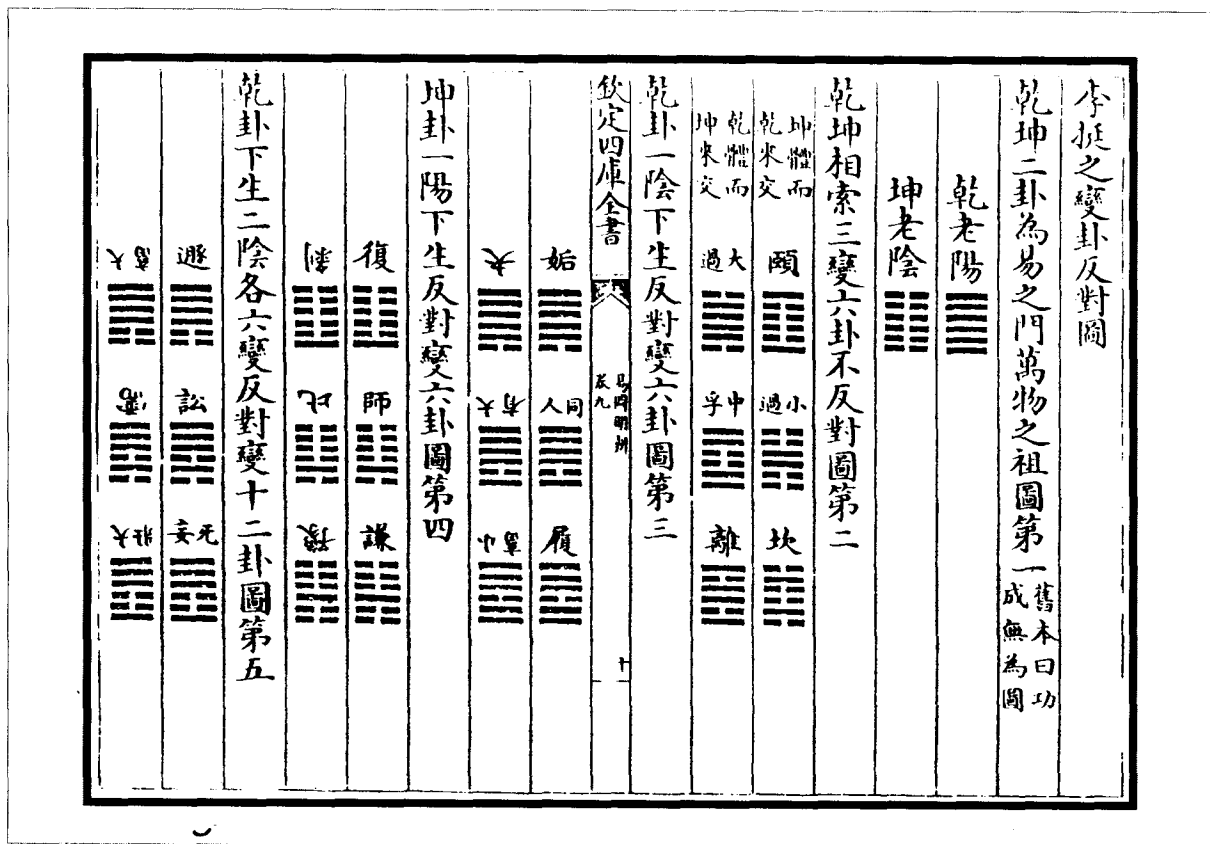 李挺之變卦反對圖
乾坤二卦為易之門萬物之祖圖第一
舊本曰功
成無為圖
乾老陽
坤老陰
乾坤相索三變六卦不反對圖第二
坤體而
乾來交
頤 小過 坎
乾體而
坤來交
大過 中孚 離
乾卦一陰下生反對變六卦圖第三
欽定四庫全書
易圖明辨
卷九
十
姤 同人 履
夬 大有 小畜
坤卦一陽下生反對變六卦圖第四
復 師 謙
剝 比 豫
乾卦下生二陰各六變反對變十二卦圖第五
遯 訟 无妄
大畜 需 大壯